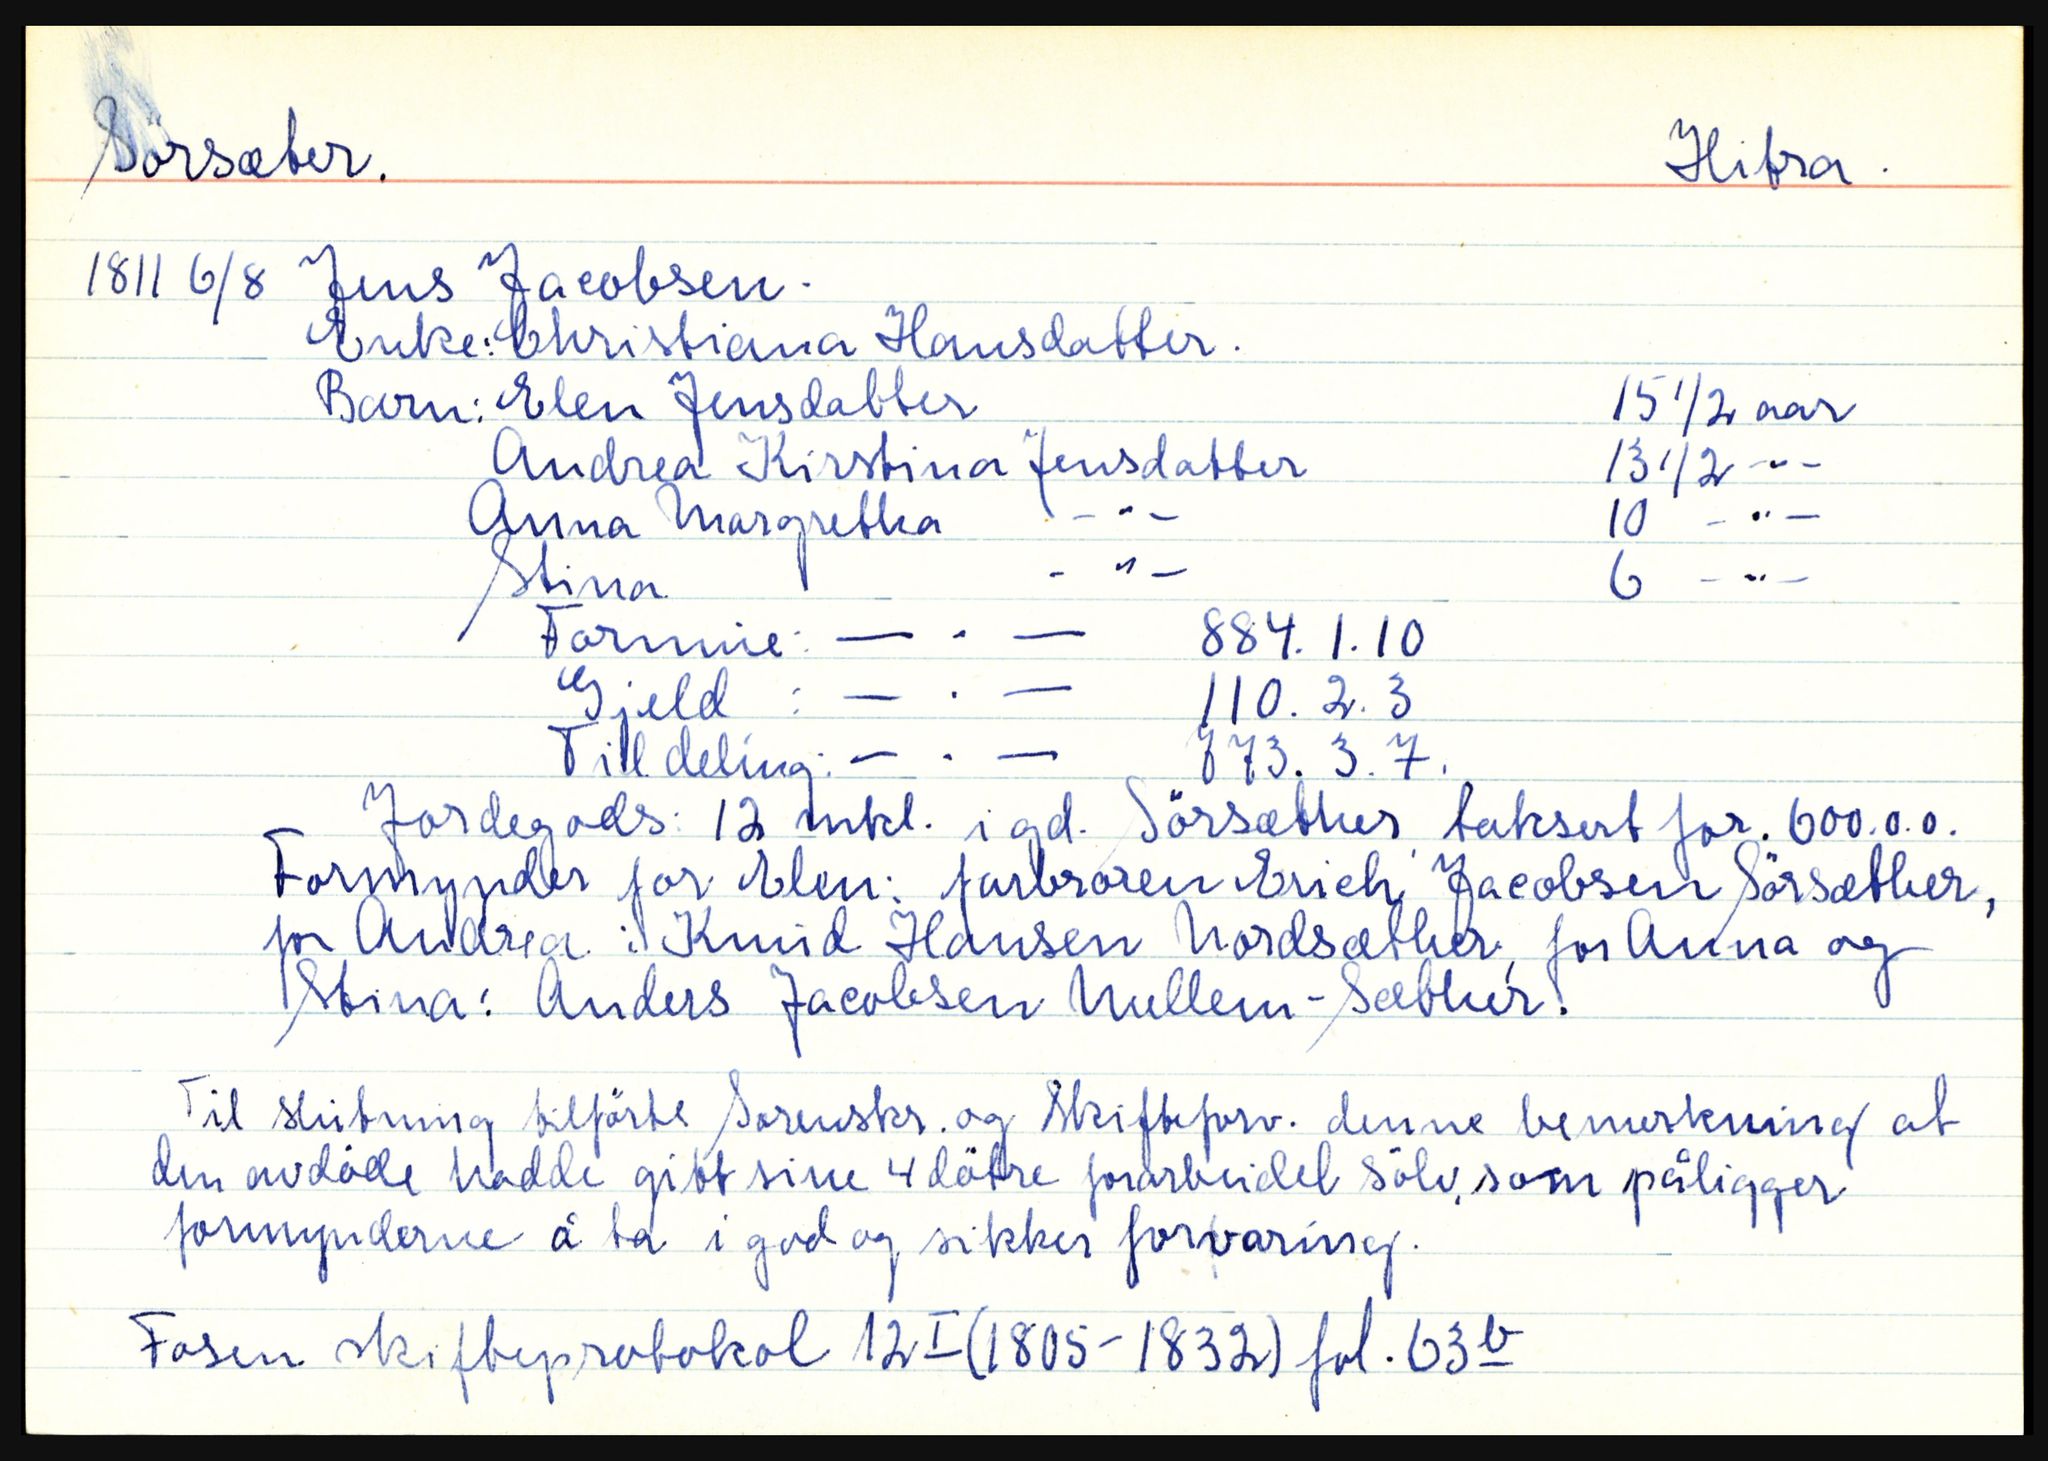 Sörsæter. Hitra.
1811 6/8 Jens Jacobsen.
Enke: Christiana Hansdatter.
Barn: Elen Jensdatter 15 1/2 aar
Andrea Kirstina Jensdatter 13 1/2 -"-
Anna Margretha -"- 10 -"-
Stina -"- 6 -"-
Formue: — . — 884. 1. 10
Gjeld : — . — 110. 2. 3
Till deling: — . — 773. 3. 7.
Jordegods: 12 mkl. i gd. Sörsæther, taksert for. 600.0.0.
Formynder for Elen: farbroren Erich Jacobsen Sörsæther,
for Andrea: Knud Hansen Nordsæther, for Anna og
Stina: Anders Jacobsen Mellem-Sæther.
Til slutning tilförte Sorenskr. og Skifteforv. denne bemerkning at
den avdöde hadde gitt sine 4 dötre forarbeidet sölv, som påligger
formynderne å ta i god og sikker forvaring.
Fosen skifteprotokol 12 I (1805-1832) fol. 63 b